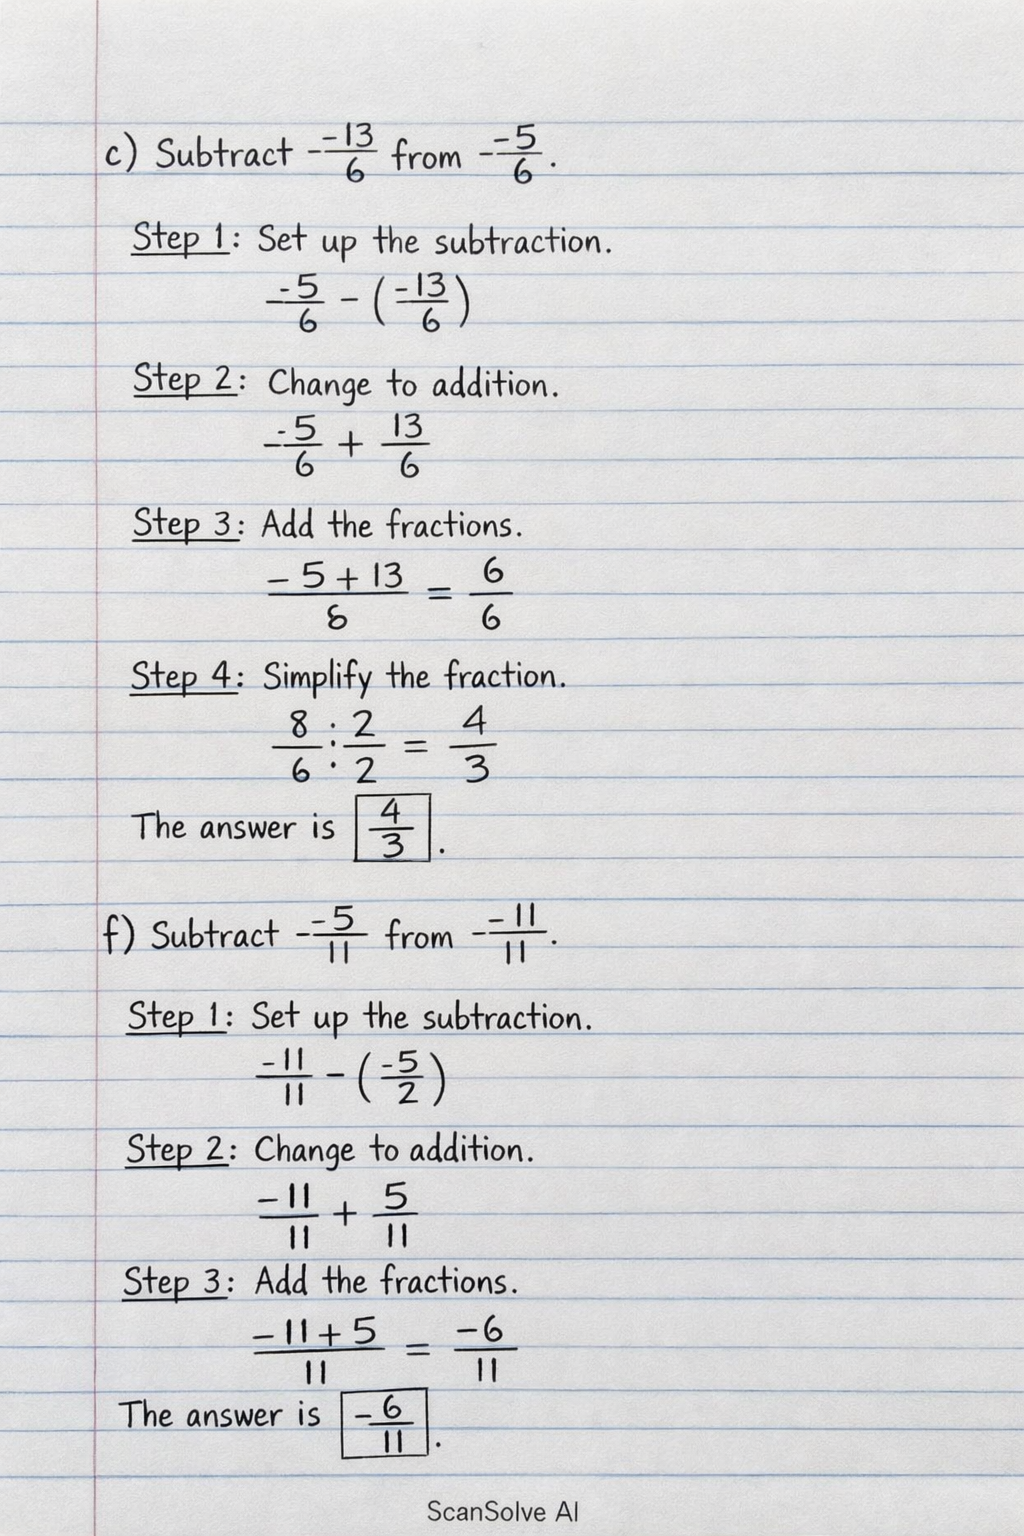 c) Subtract -13/6 from -5/6.
Step 1: Set up the subtraction.
-5/6 - (-13/6)
Step 2: Change to addition.
-5/6 + 13/6
Step 3: Add the fractions.
-5+13/8 = 6/6
Step 4: Simplify the fraction.
8/6 : 2/2 = 4/3
The answer is 4/3.
f) Subtract -5/11 from -11/11.
Step 1: Set up the subtraction.
-11/11 - (-5/2)
Step 2: Change to addition.
-11/11 + 5/11
Step 3: Add the fractions.
-11+5/11 = -6/11
The answer is -6/11.
ScanSolve AI